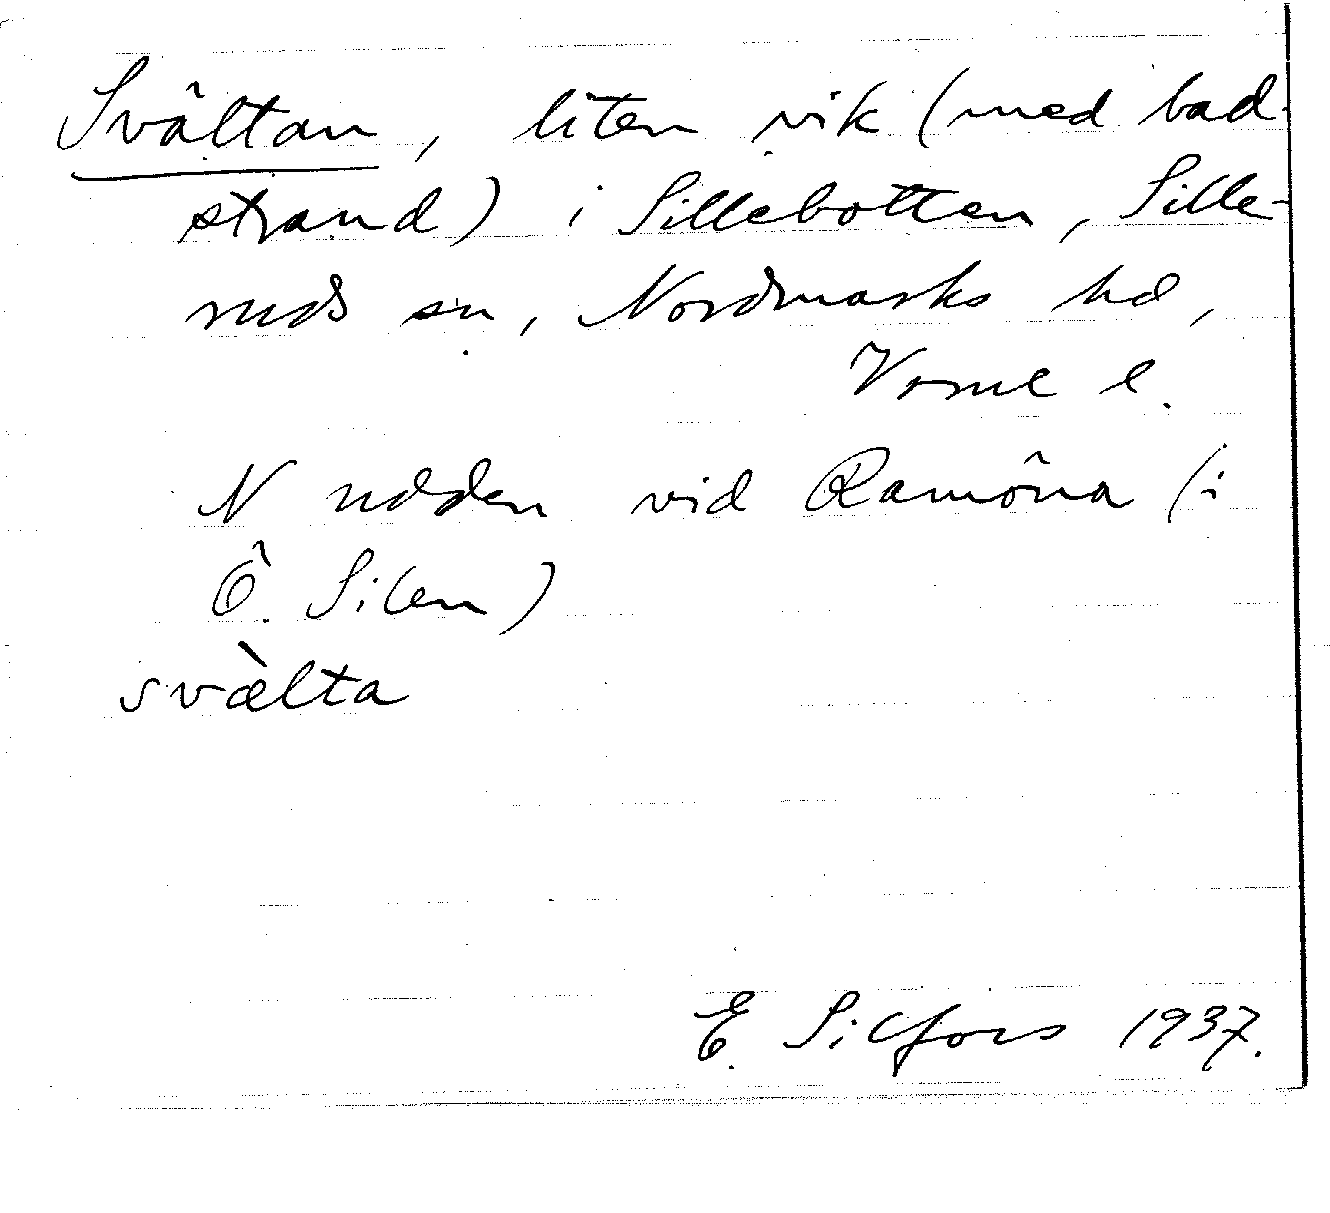 Svältan, liten vik (med bad-
strand) i Sillebotten, Sille-
ruds sn, Nordmarks hd,
Vrml l.
N udden vid Ramöna (i
Ö. Silen)
svàlta
E. Silfors 1937.